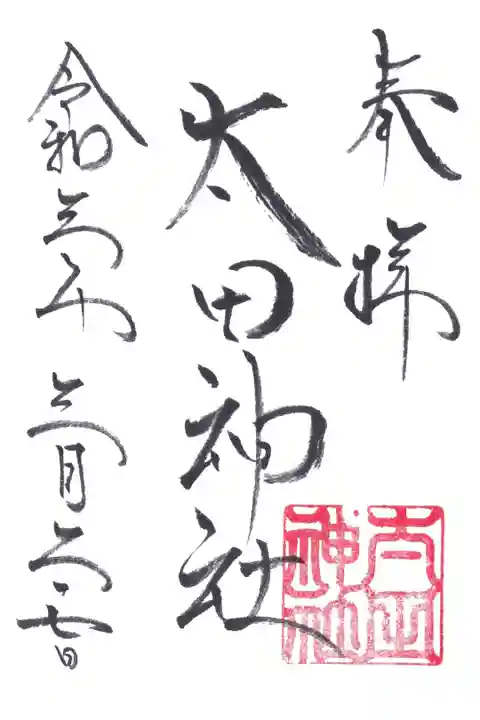 奉拝
太田神社
令和三年 三月二十七日
太田神社